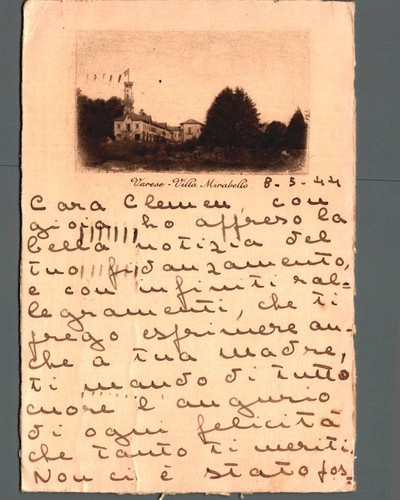 Varese - Villa Mirabello
8-5-44
Cara Clemen, con
gioia ho appreso la
bella notizia del
tuo fidanzamento,
e con infiniti ral=
legramenti, che ti
prego esprimere an-
che a tua madre,
ti mando di tutto
cuore l'augurio
di ogni felicità
che tanto ti meriti.
Non ci è stato pos=